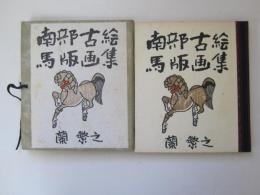 南部古絵
馬版画集
蘭繁之
南部古絵
馬版画集
蘭繁之